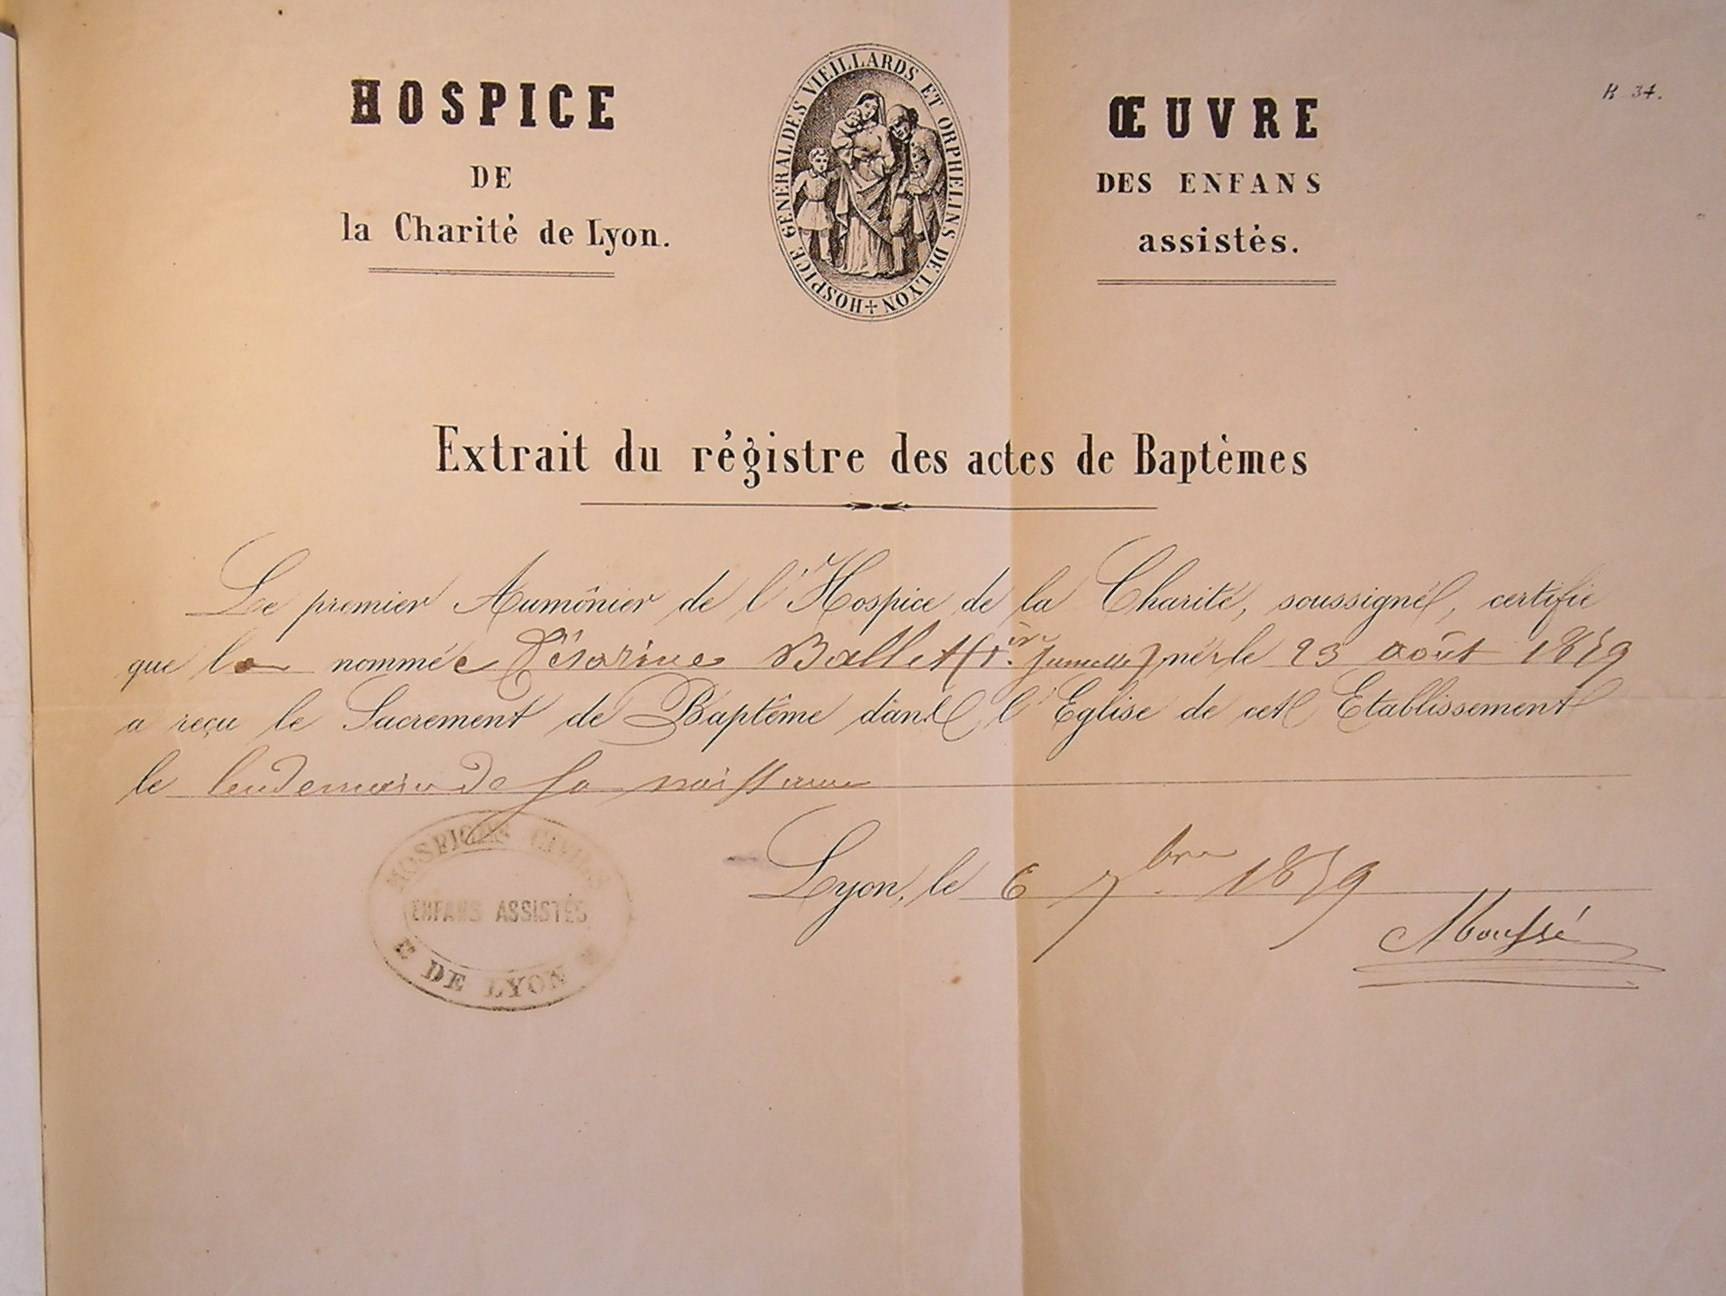 HOSPICE
DE
la Charité de Lyon.
HOSPICE GÉNÉRAL DES VIEILLARDS ET ORPHELINS DE LYON
ŒUVRE
DES ENFANS
assistés.
R 34.
Extrait du régistre des actes de Baptêmes
Le premier Aumônier de l'Hospice de la Charité, soussigné, certifie
que la nommée Césarine Ballet (1ère Jumelle) née le 23 août 1859
a reçu le Sacrement de Baptême dans l'Eglise de cet Etablissement
le lendemain de sa naissance
Lyon, le 6 7bre 1859
HOSPICES CIVILS
ENFANS ASSISTÉS
DE LYON